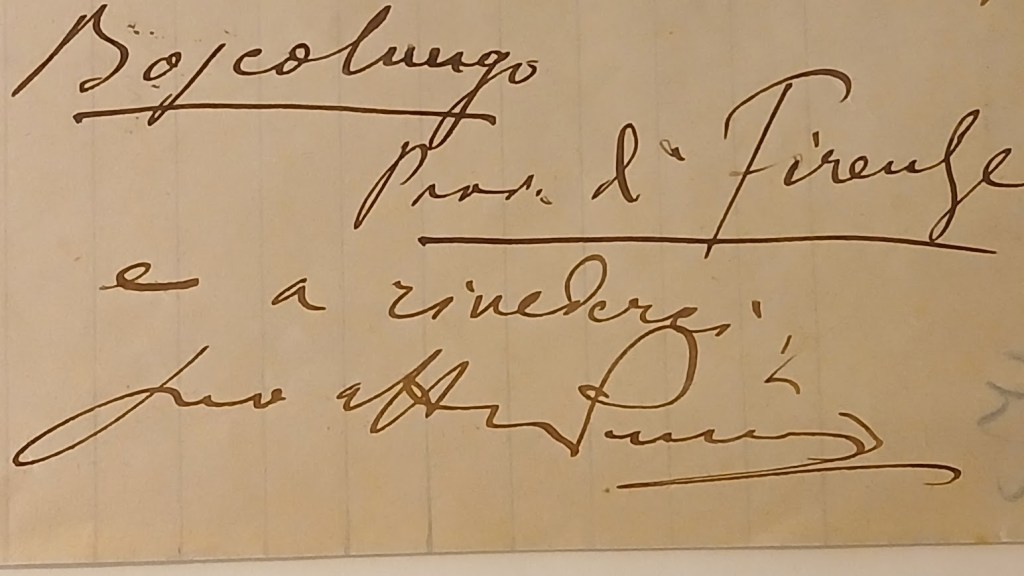 Boscolungo
Prov. di Firenze
e a rivederci
suo affmo Puccini